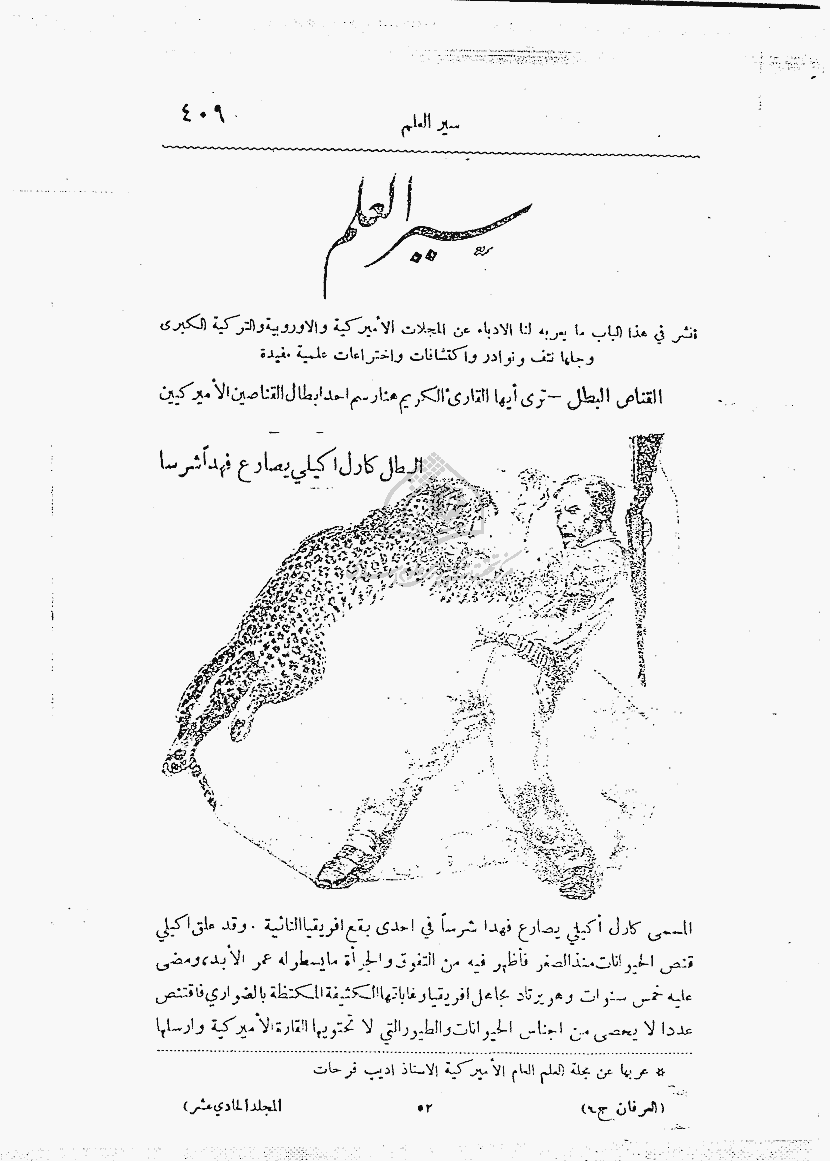 ٤٠٩
سير العلم
سير العلم
ننشر في هذا الباب ما يعربه لنا الادباء عن المجلات الأميركية والاوروبية والتركية الكبرى
وجلها نتف ونوادر واكتشافات واختراعات علمية مفيدة
القناص البطل — ترى أيها القارئ الكريم هنا رسم احد ابطال القناصين الأميركيين
البطل كارل اكيلي يصارع فهداً شرسا
المسمى كارل أكيلي يصارع فهدا شرساً في احدى بقع افريقيا النائية . وقد علق اكيلي
قنص الحيوانات منذ الصغر فأظهر فيه من التفوق والجرأة ما يسطر له عمر الأبد، ومضى
عليه خمس سنوات وهو يرتاد مجاهل افريقيا وغاباتها الكثيفة المكتظة بالضواري فاقتنص
عددا لا يحصى من اجناس الحيوانات والطيور التي لا تحتويها القارة الأميركية وارسلها
* عربها عن مجلة العلم العام الأميركية الاستاذ اديب فرحات
(العرفان ج٦) ٥٢ المجلد الحادي عشر)